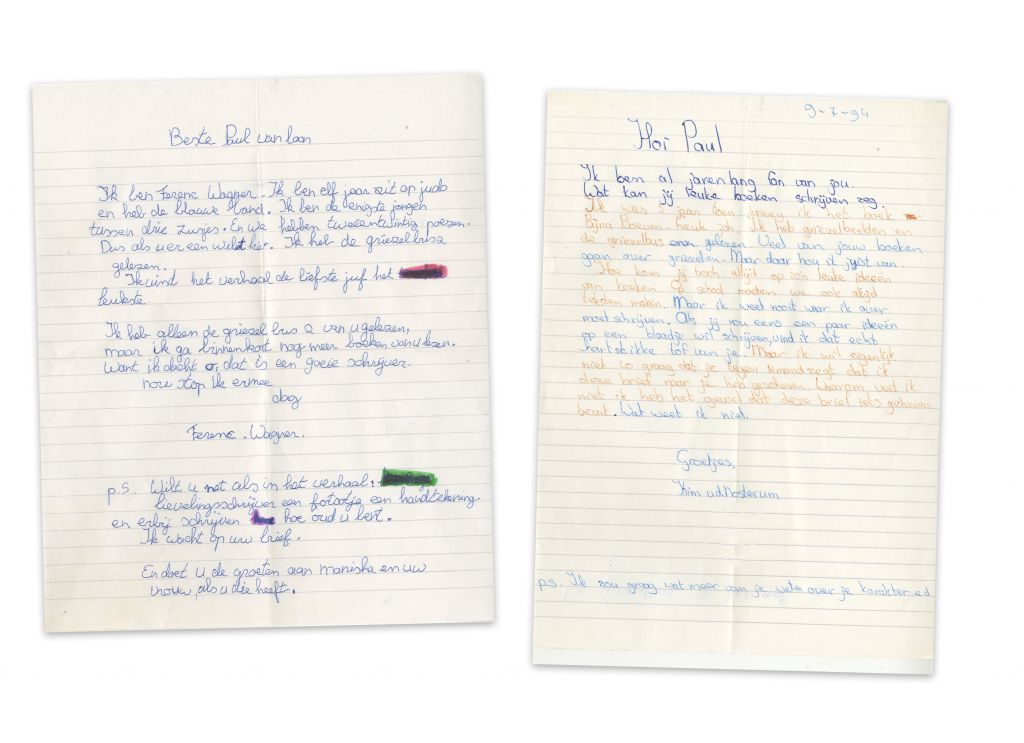 Beste Paul van loon
Ik ben Ferenc Wagner. Ik ben elf jaar zit op judo
en heb de blauwe band. Ik ben de enigste jongen
tussen drie zusjes. En we hebben tweeentwintig poezen.
Dus als u er een wilt hier. Ik heb de griezelbus 2
gelezen.
Ik vind het verhaal de liefste juf het
leukste
Ik heb alleen de griezel bus 2 van u gelezen,
maar ik ga binnenkort nog meer boeken van u lezen.
Want ik dacht o, dat is een goeie schrijver.
nou stop ik ermee
dag
Ferenc. Wagner.
p.S. Wilt u net als in het verhaal:
lievelingsschrijver een fotootje een handtekening
en erbij schrijven hoe oud u bent.
Ik wacht op uw brief.
En doet u de groeten aan maniska en uw
vrouw, als u die heeft.
9-7-94
Hoi Paul
Ik ben al jarenlang fan van jou.
Wat kan jij leuke boeken schrijven zeg.
Ik was 5 jaar toen kreeg ik het boek
Bijna Boeven. heuk joh. Ik heb griezelbeelden en
de griezelbus gelezen. Veel van jouw boeken
gaan over griezelen. Maar daar hou ik juist van.
Hoe kom jij toch altijd op zo'n leuke ideeën
van boeken. Op school moeten we ook altijd
teksten maken. Maar ik weet nooit waar ik over
moet schrijven. Als jij nou eens een paar ideeën
op een blaadje wil schrijven, vind ik dat echt
hartstikke tof van je. Maar ik wil eigenlijk
niet zo graag dat je tegen iemand zegt dat ik
deze brief naar je heb geschreven. Waarom weet ik
niet ik heb het gevoel dat deze brief iets geheims
bevat. Wat weet ik niet.
Groetjes,
Kim v.d. Nosterum
p.s. Ik zou graag wat meer van je weten over je karakter e.d.